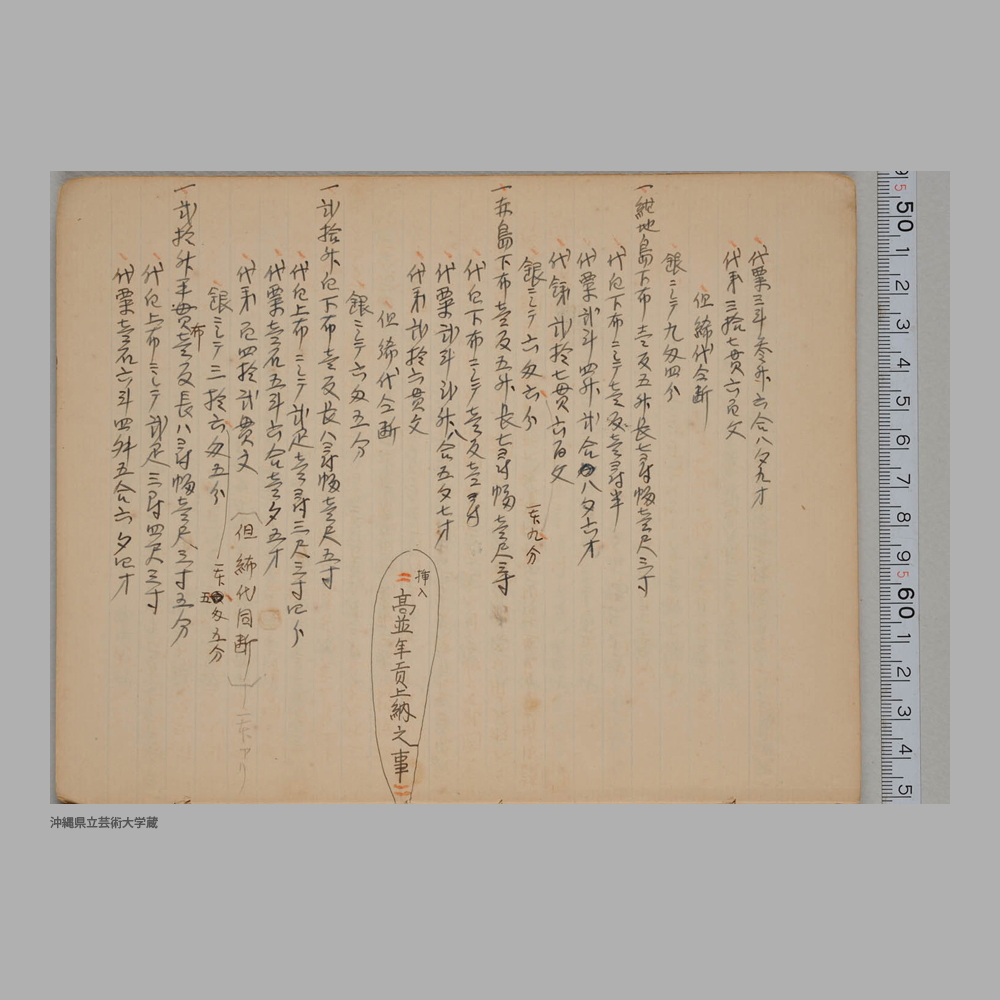 代粟三斗参升六合八夕九才
代銭三拾七貫六百文
但締代全断
銀ニシテ九匁四分
一紺地島下布壱反五升長七尋幅壱尺三寸
代白下布ニシテ壱反壱尋半
代粟弐斗四升弐合八夕六才
代銭弐拾七貫六百文
銀ニシテ六匁六分
一本九分
一赤島下布壱反五升長七尋幅壱尺三寸
代白下布ニシテ壱反壱寸
代粟弐斗弐升八合五夕七才
代銭弐拾六貫文
挿入
高並年貢上納之事
但締代全断
銀ニシテ六匁五分
一弐拾升白下布壱反長八尋幅壱尺五寸
代白上布ニシテ弐疋壱尋三尺三寸四分
代粟壱石五斗六合壱夕五才
代銭百四拾弐貫文
(但締代同断)
一本アリ
銀ニシテ三拾六匁五分
一本五匁五分
一弐拾升平貫布壱反長八尋幅壱尺三寸五分
代白上布ニシテ弐疋三尋四尺三寸
代粟壱石六斗四升五合六夕四才
沖縄県立芸術大学蔵